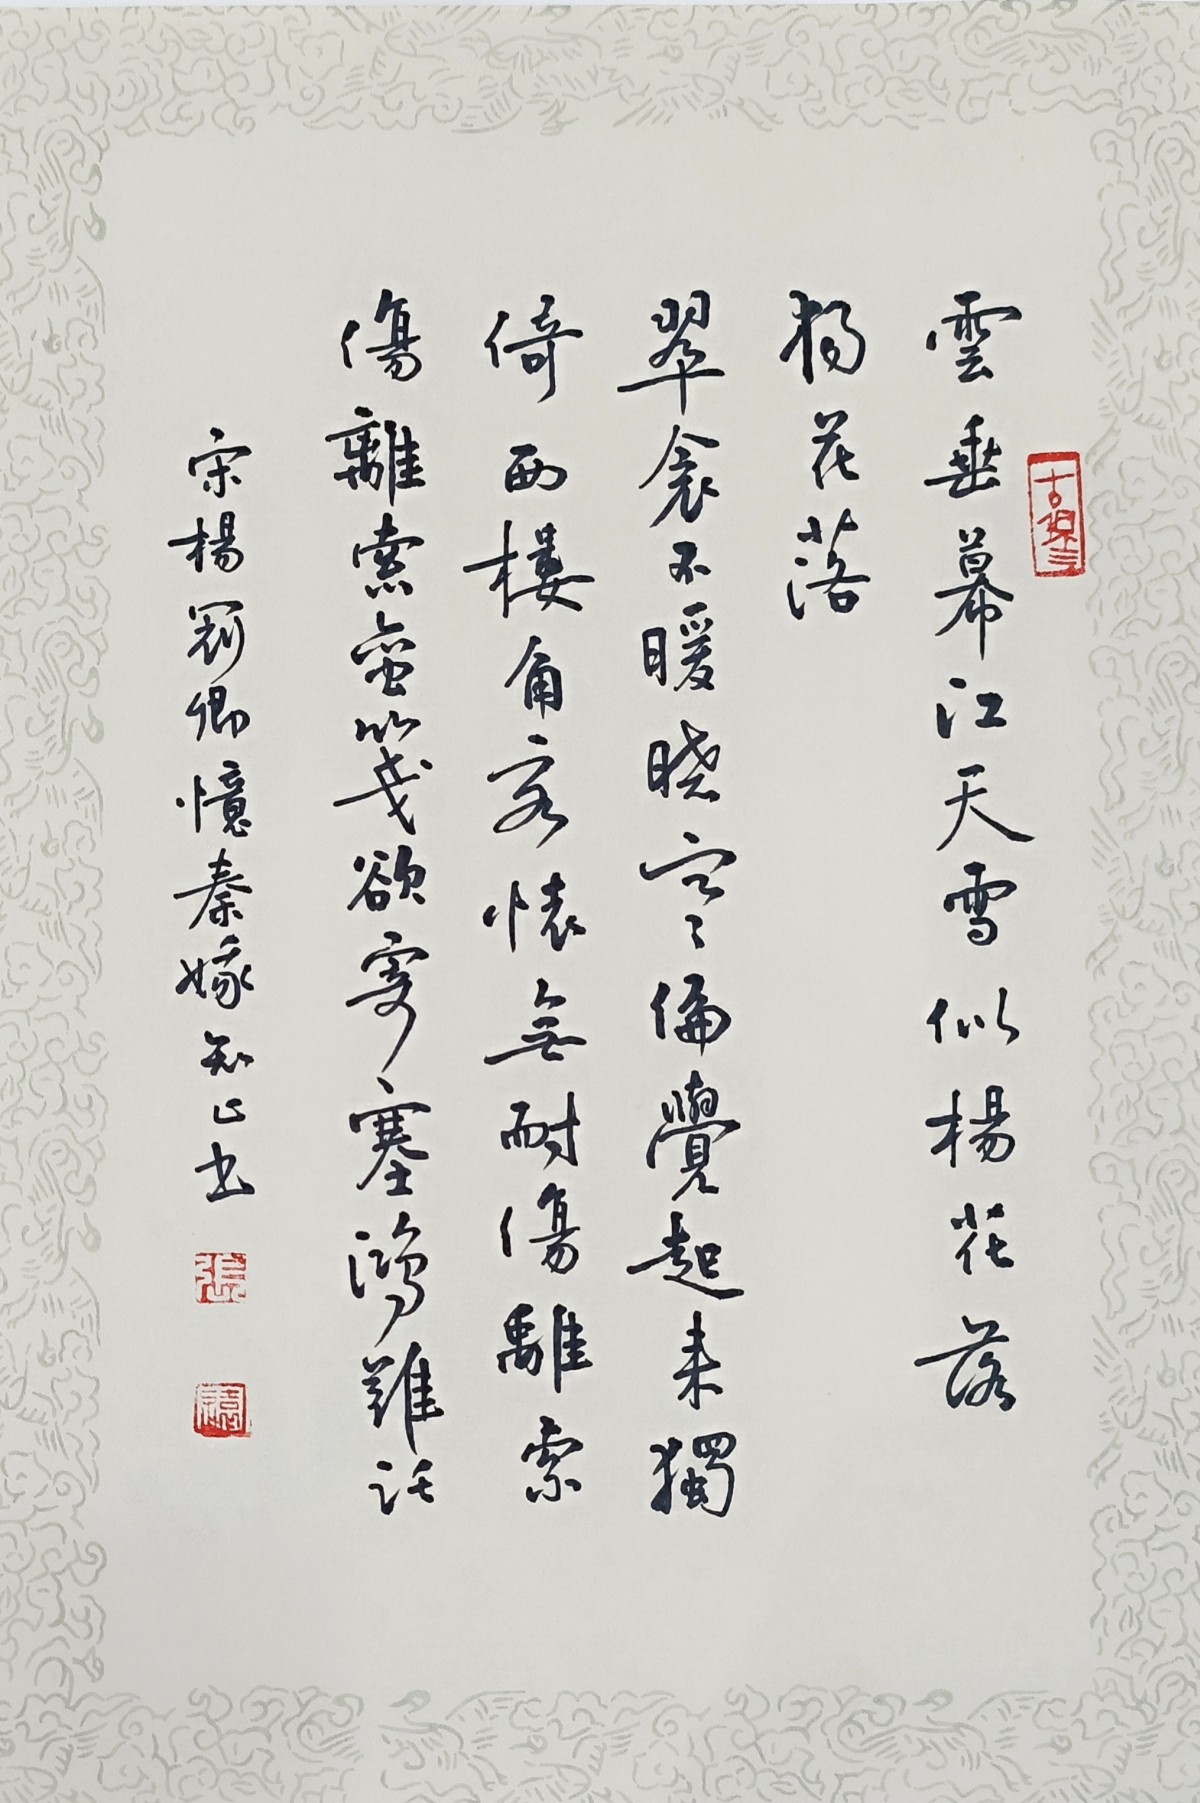 雲垂幕江天雪似楊花落
楊花落
翠衾不暖晓寒偏覺起来獨
倚西樓角客懷無耐傷離索
傷離索蛮箋欲寄塞鴻難託
宋楊冠卿憶秦娥知止书
張